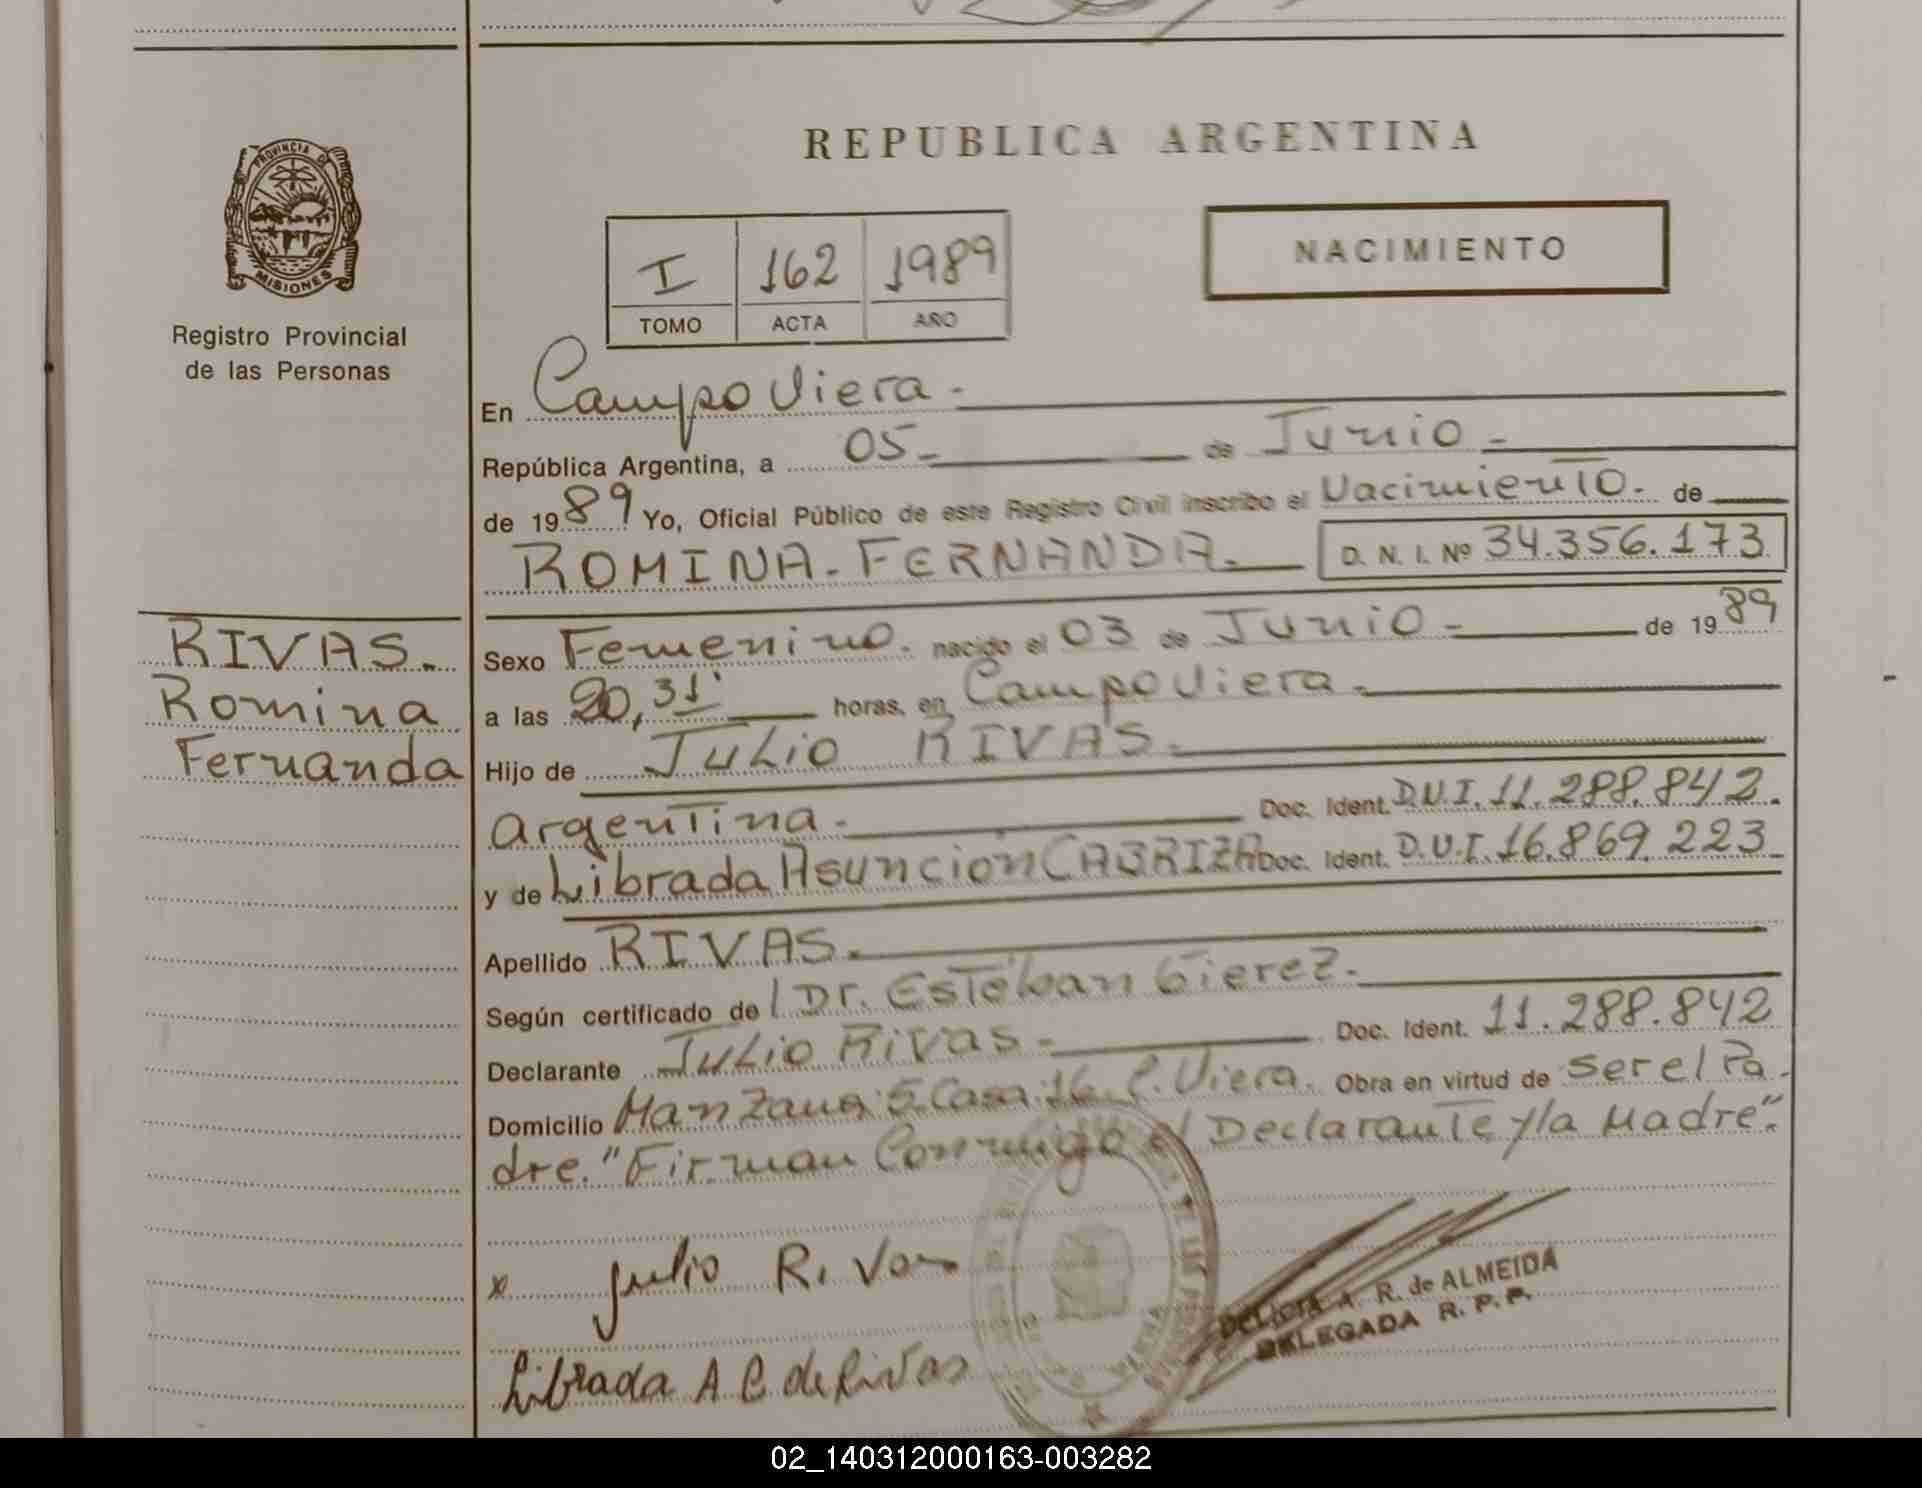 REPUBLICA ARGENTINA
PROVINCIA DE
MISIONES
Registro Provincial
de las Personas
I 162 1989
TOMO ACTA AÑO
NACIMIENTO
En Campo Viera -
República Argentina, a 05- de Junio -
de 1989 Yo, Oficial Público de este Registro Civil inscribo el Nacimiento. de
ROMINA. FERNANDA. D. N. I. Nº 34.356.173
RIVAS.
Romina
Fernanda
Sexo Femenino. nacido el 03 de Junio - de 1989
a las 20,31' horas, en Campo Viera -
Hijo de Julio RIVAS.
Argentina. Doc. Ident. D.N.I. 11.288.842.
y de Librada Asunción CABRIZA Doc. Ident. D.N.I. 16.869.223
Apellido RIVAS.
Según certificado de Dr. Esteban Gierez.
Declarante Julio Rivas. Doc. Ident. 11.288.842
Domicilio Manzana 5. Casa. 16. C. Viera. Obra en virtud de ser el Pa-
dre. "Firman Conmigo el Declarante y la Madre".
x Julio Rivas
Librada A C de Rivas
DELICIA A. R. de ALMEIDA
DELEGADA R. P. P.
02_140312000163-003282